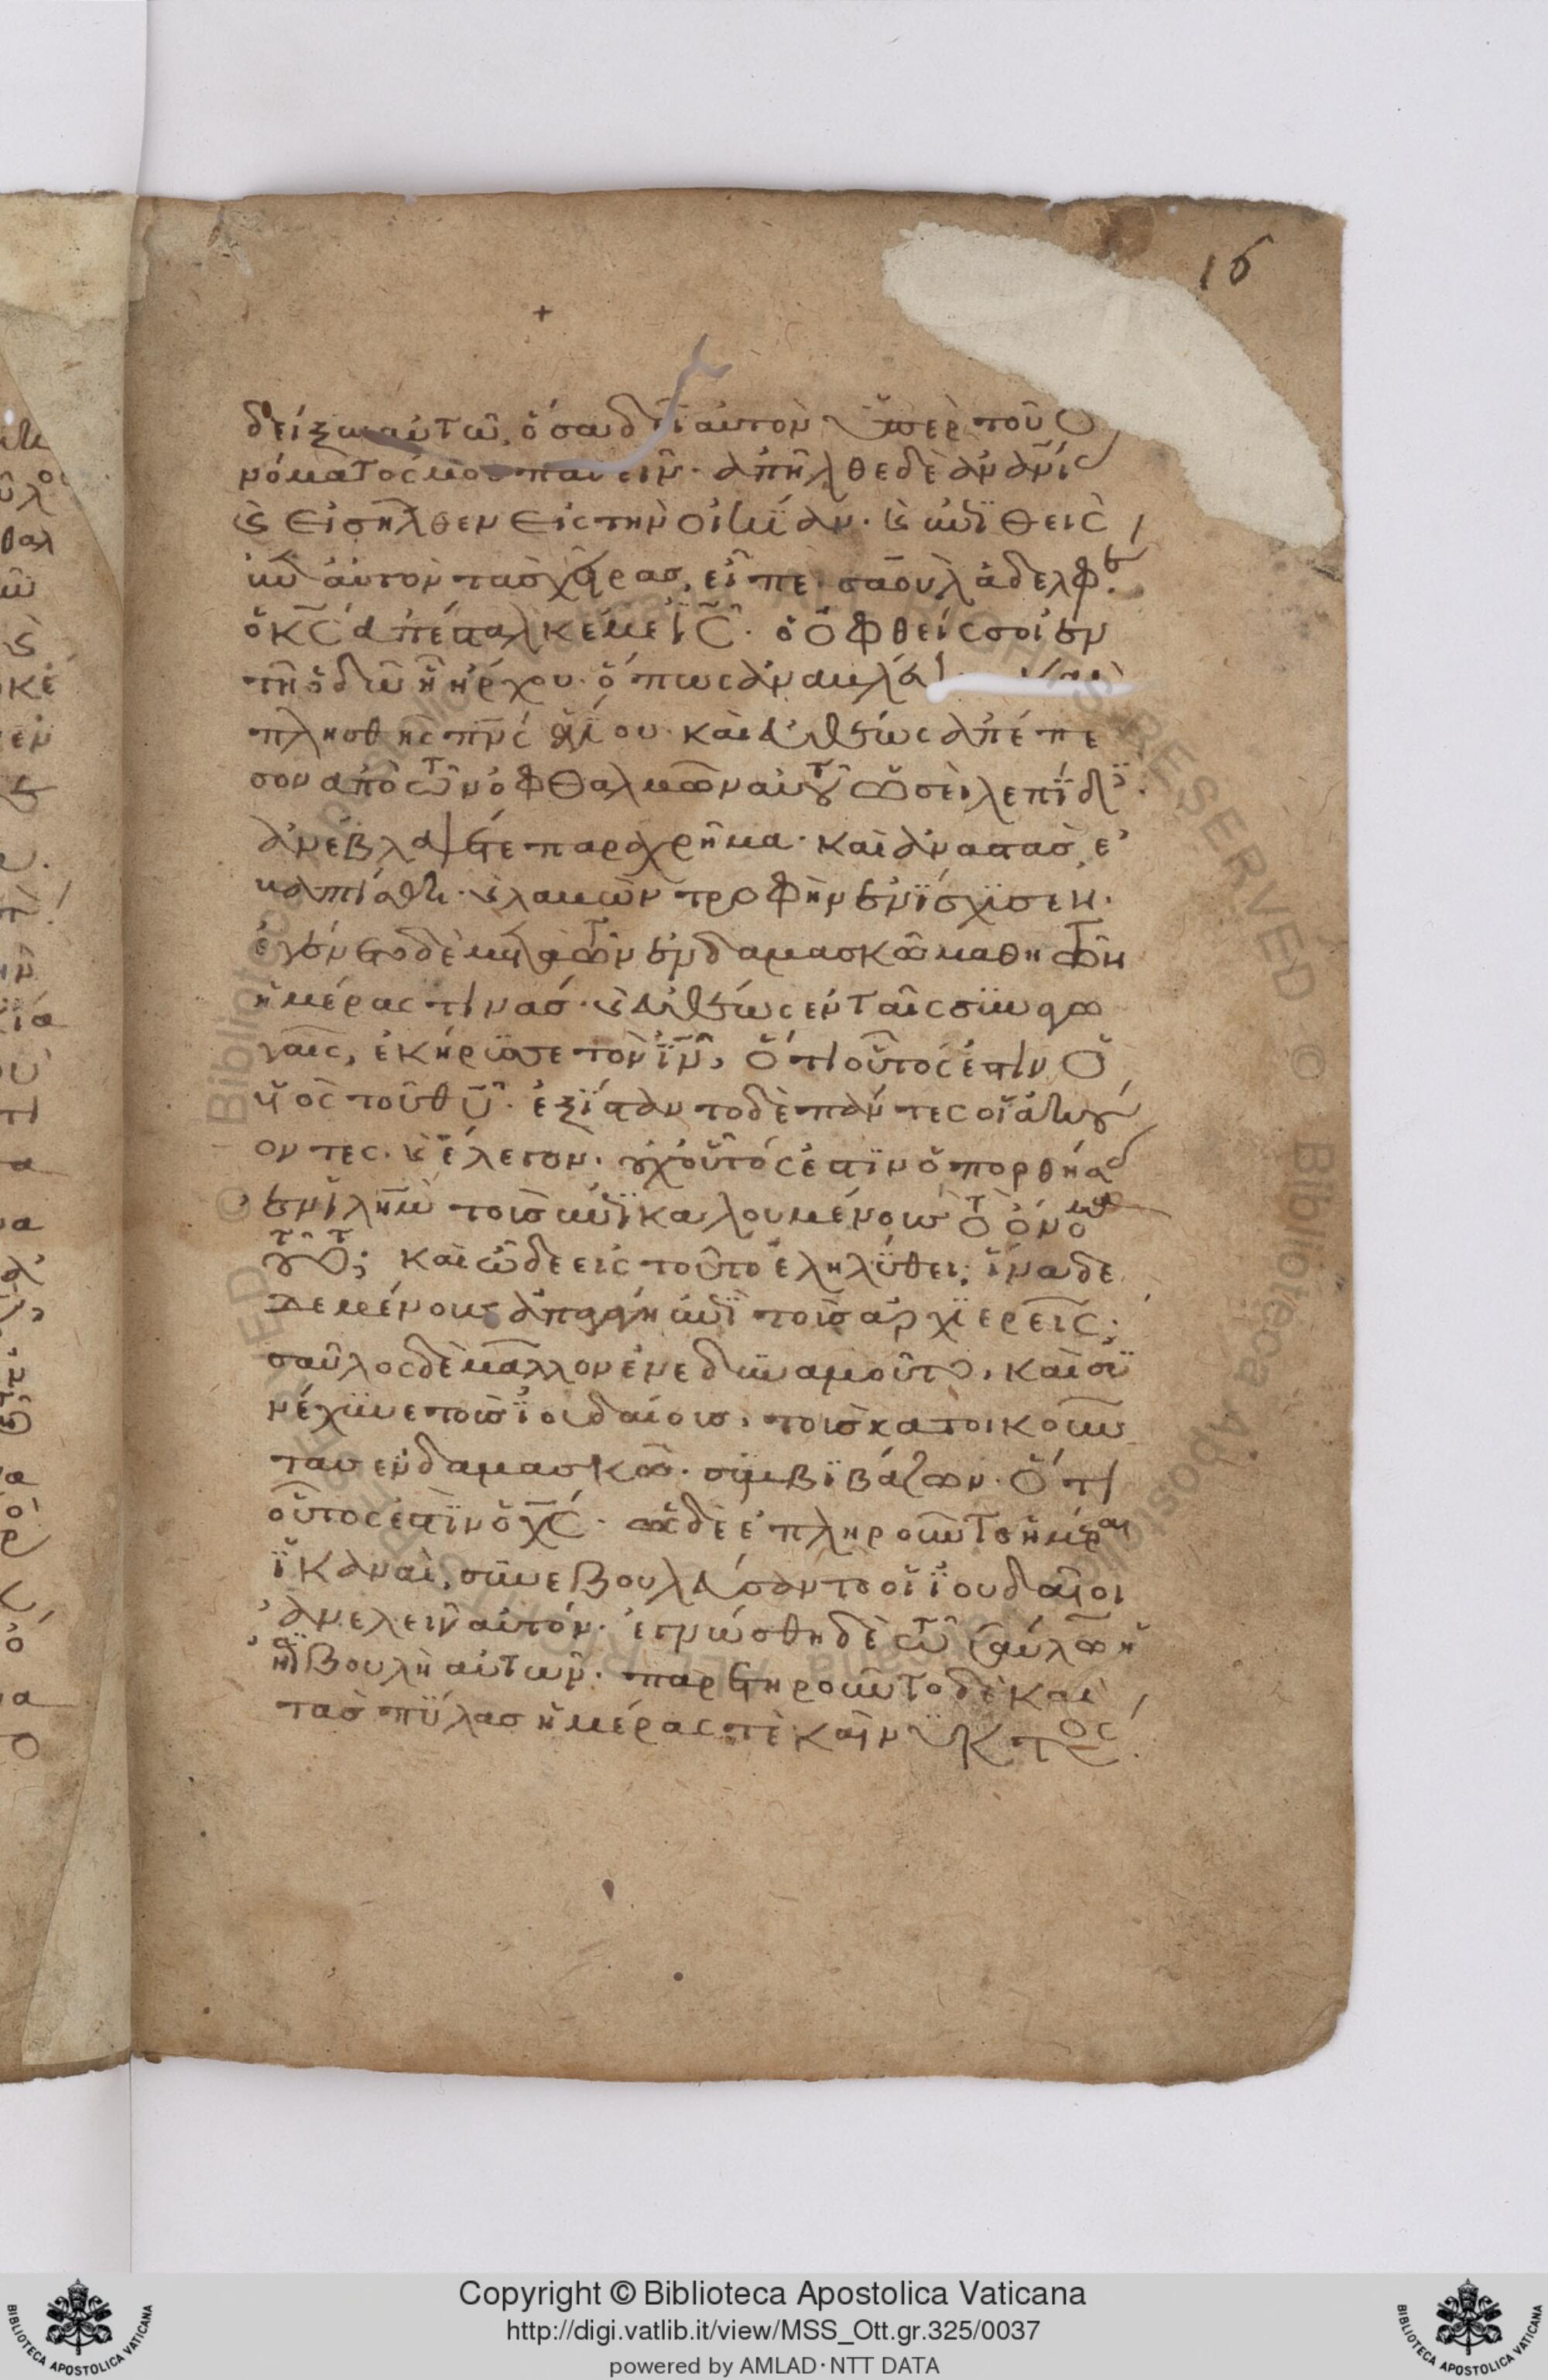 15
+
δείξω αὐτῶ, ὅσα δεῖ αὐτὸν ὑπὲρ τοῦ ὀ
νόματός μου παθεῖν· ἀπῆλθε δὲ ἀνανί(ας)
καὶ εἰσῆλθεν εἰς τὴν οἰκΐαν· καὶ ἐπϊθεὶς
ἐπ' αὐτὸν τὰσ χεῖρασ, εἶπε· σαοὺλ ἀδελφὲ·
ὁ κ̅ς̅ ἀπέσταλκέ με ι̅ς̅· ὁ ὀφθείς σοι ἐν
τῆ ὁδῶ ἧ ἤρχου· ὅπως ἀναβλέ
πλησθῆς π̅ν̅ς̅ ἁγΐου· καὶ εὐθέως ἀπέπε
σον ἀπὸ τῶν ὀφθαλμῶν αὐτοῦ ὡσεὶ λεπΐδες·
ἀνέβλεψέ τε παραχρῆμα· καὶ ἀναστὰσ ἐ
βαπτίσθη· καὶ λαβὼν τροφὴν ἐνΐσχϋσεν·
ἐγένετο δὲ μετὰ τῶν ἐν δαμασκῶ μαθητῶν
ἡμέρας τινάσ· καὶ εὐθέως ἐν ταῖς σϋναγω
γαῖς, ἐκήρϋσσε τὸν ι̅ν̅, ὅτι οὗτός ἐστιν ὁ
υἱὸς τοῦ θ̅υ̅· ἐξΐσταντο δὲ πάντες οἱ ἀκού
οντες· καὶ ἔλεγον· οὐχ οὗτός ἐστϊν ὁ πορθήσας
ἐν ἱ̅λ̅η̅μ̅ τοὺσ ἐπϊκαλουμένουσ τὸ ὄνομα
τοῦτο; καὶ ὧδε εἰς τοῦτο ἐληλύθει; ἵνα δε
δεμένους ἀπαγάγη ἐπὶ τοὺσ ἀρχϊερεῖς;
σαῦλος δὲ μᾶλλον ἐνεδϋναμοῦτο, καὶ σϋ
νέχϋνε τοὺσ ϊουδαίουσ, τοὺσ κατοικοῦν
τασ ἐν δαμασκῶ· σϋμβϊβάζων· ὅτι
οὗτος ἐστϊν ὁ χ̅ς̅· ὡς δὲ ἐπληροῦντο ἡμέραι
ϊκαναὶ, σϋνεβουλεύσαντο οἱ ϊουδαῖοι
ἀνελεῖν αὐτόν· ἐγνώσθη δὲ τῶ σαύλω ἡ
ἐπϊβουλὴ αὐτῶν· παρετηροῦντο δὲ καὶ
τὰσ πύλασ ἡμέρας τὲ καὶ νϋκτὸς·
Copyright © Biblioteca Apostolica Vaticana
http://digi.vatlib.it/view/MSS_Ott.gr.325/0037
powered by AMLAD·NTT DATA